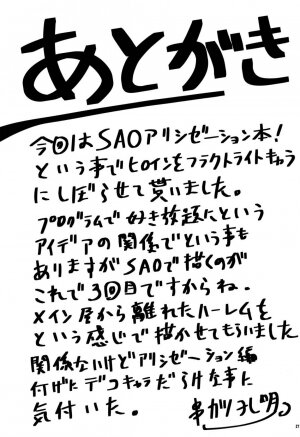 あとがき
今回はSAOアリシゼーション本!
という事でヒロインをフラクトライトキャラ
にしぼらせて貰いました。
プログラムで好き放題にという
アイデアの関係でという事も
ありますがSAOで描くのが
これで3回目ですからね。
メイン屋から離れたハーレムを
という感じで描かせてもらいました
関係ないけどアリシゼーション編
付げにデコキャラだらけな事に
気付いた。
串がりこし明